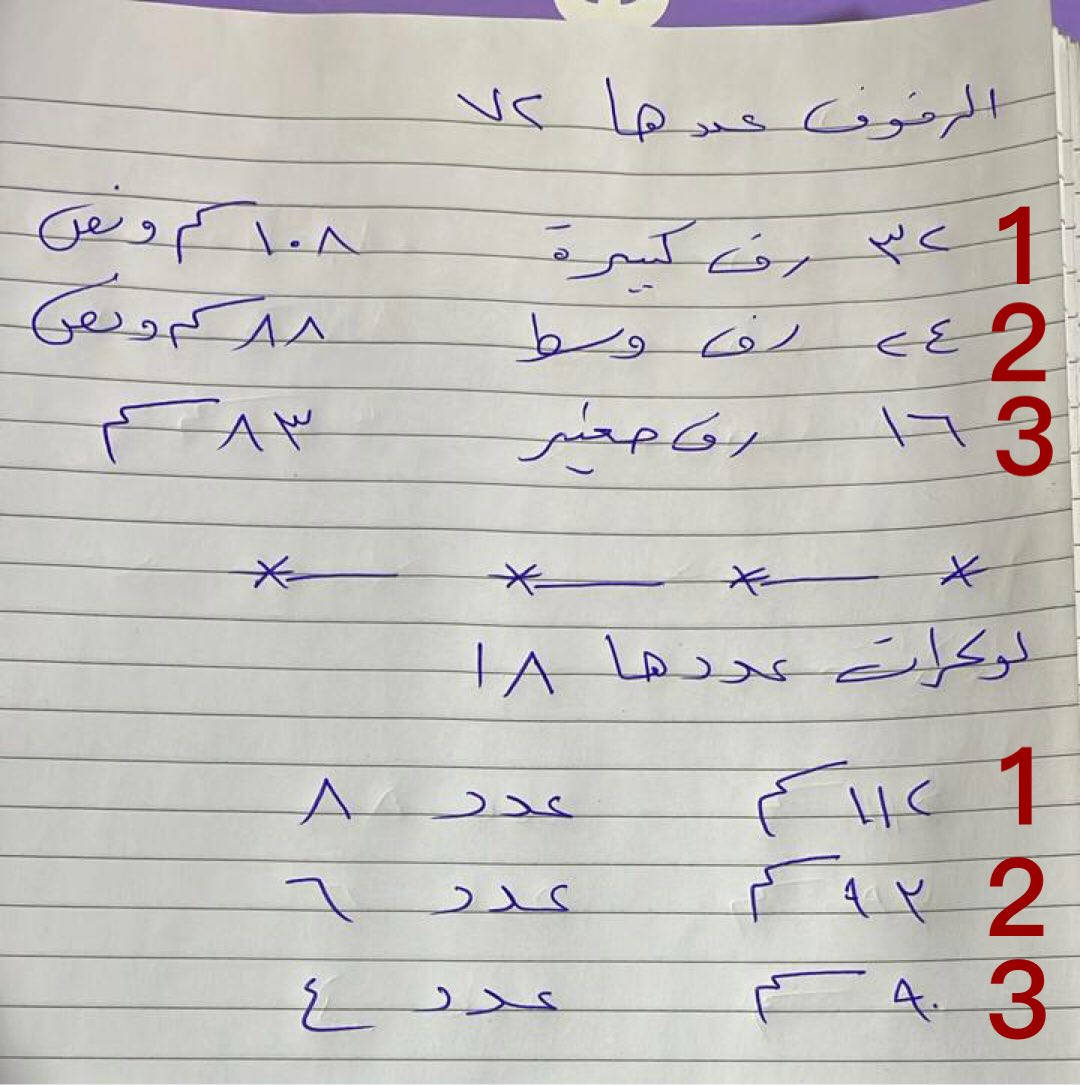 الرفوف عددها ٧٢
1 ٣٢ رف كبيرة ١٠٨ سم ونص
2 ٢٤ رف وسط ٨٨ سم ونص
3 ١٦ رف صغير ٨٣ سم
لوكرات عددها ١٨
1 ١١٢ سم عدد ٨
2 ٩٣ سم عدد ٦
3 ٩٠ سم عدد ٤